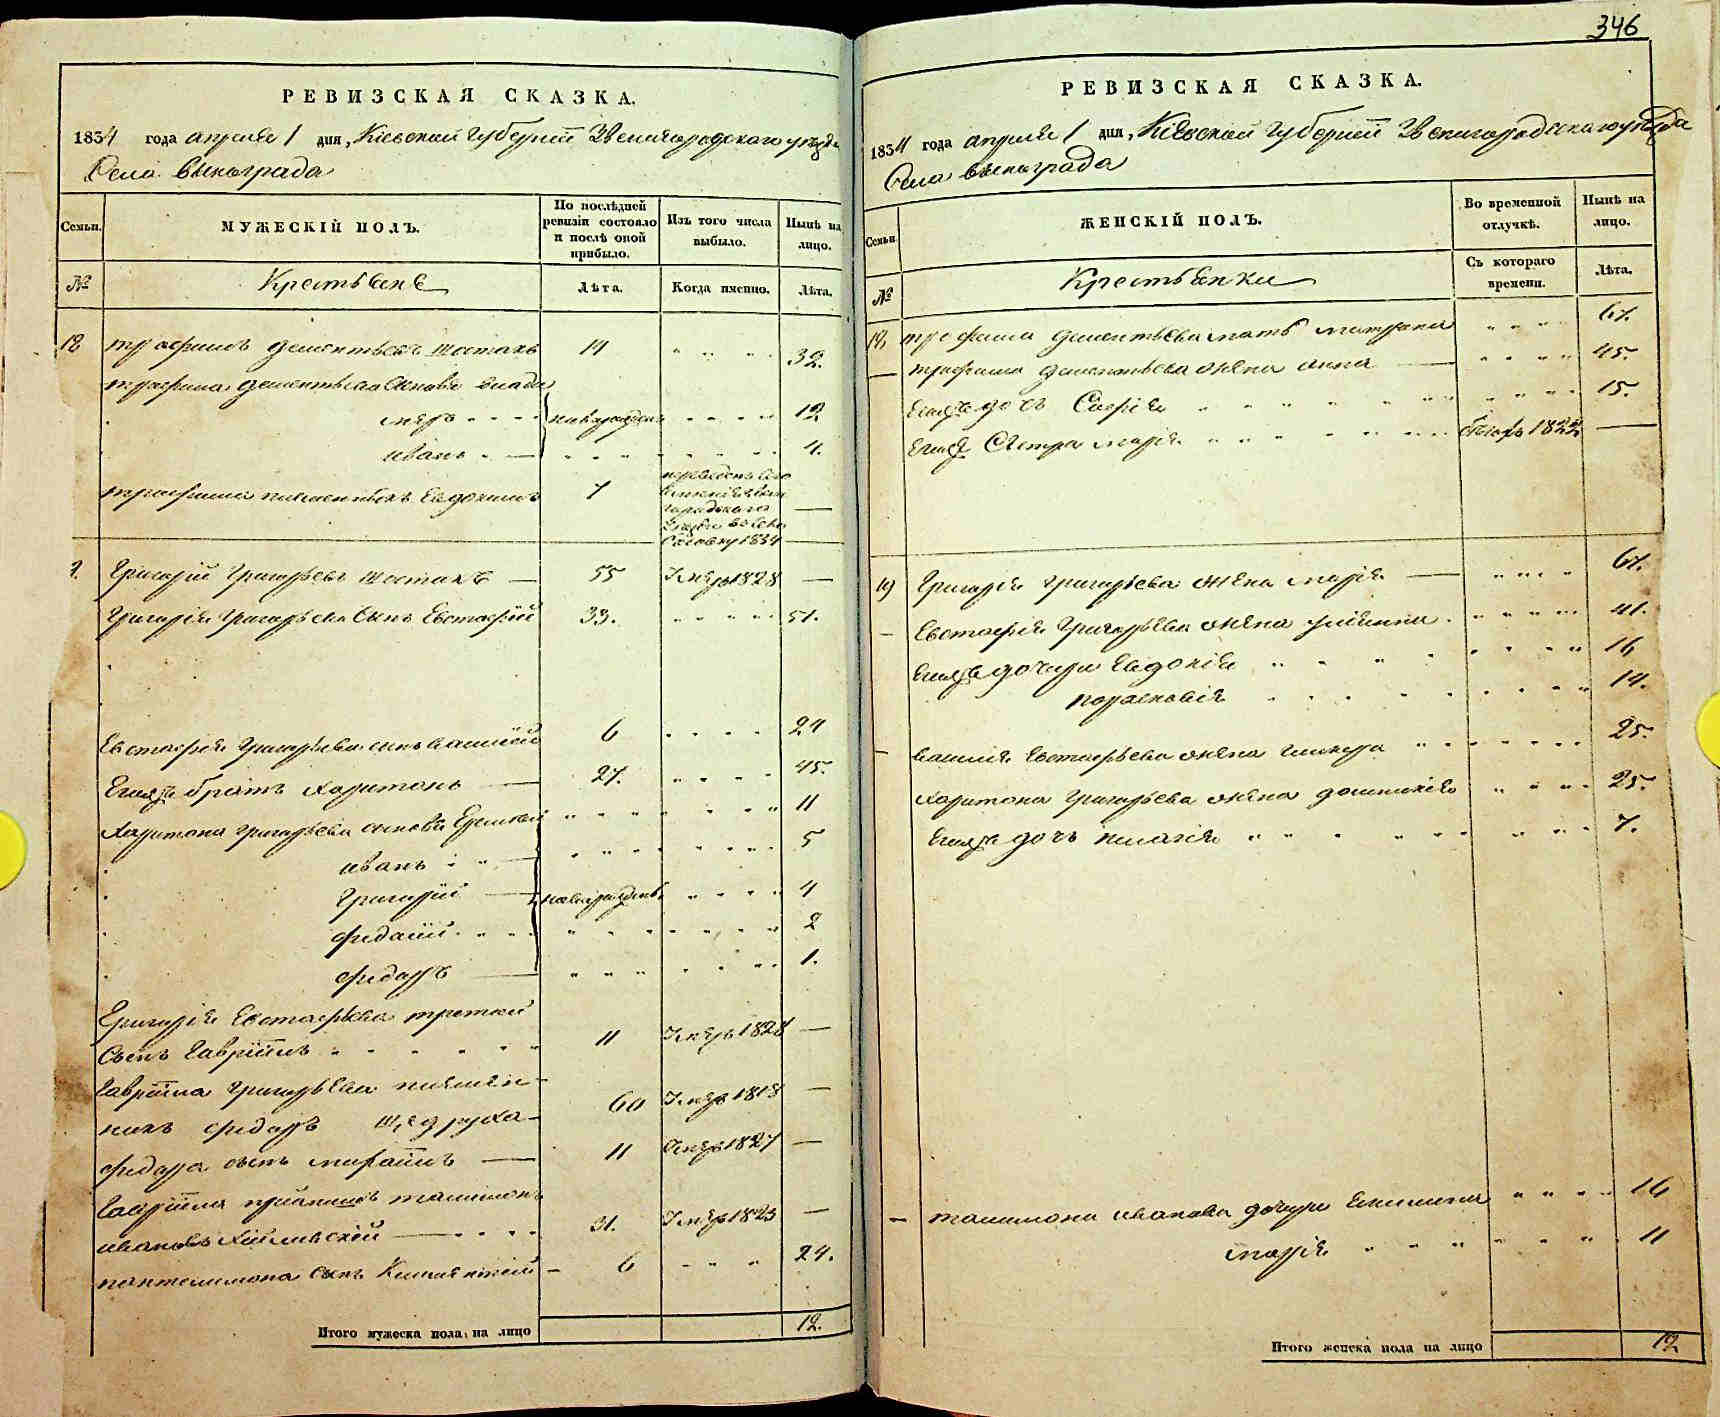 346
РЕВИЗСКАЯ СКАЗКА.
1834 года апреля 1 дня, Кіевской Губерніи Звенигородскаго уезда
Села Винограда
Семьи.
МУЖЕСКІЙ ПОЛЪ.
По послѣдней ревизіи состояло и послѣ оной прибыло.
Изъ того числа выбыло.
Нынѣ на лицо.
№
Крестьяне
Лѣта.
Когда именно.
Лѣта.
18 трофимъ дементьевъ шостакъ 14 32.
трофима дементьева сыновья влади
меръ новорожден 12
иванъ 4.
трофима племенникъ Евдокимъ 7
1834
9. Григорій Григорьевъ шостакъ — 55 1828 —
Григорія Григорьева сынъ Евстафій 33. 51.
Евстафія Григорьева сынъ василій 6 24
Егожъ братъ Харитонъ — 27. 45.
Харитона григорьева сыновья 11
иванъ 5
Григорій — новорожден 4
2
федоръ — 1.
Григорія Евстафьева третій
Сынъ Гаврійлъ 11 1828 —
Гаврійла григорьева племен
никъ федоръ 60 1818 —
федора сынъ 11 1827 —
Гаврійла
ивановъ 31. 1823 —
пантелимона сынъ 6 24.
Итого мужеска пола на лицо 12.
РЕВИЗСКАЯ СКАЗКА.
1834 года апреля 1 дня, Кіевской Губерніи Звенигородскаго уезда
Села Винограда
Семьи.
ЖЕНСКІЙ ПОЛЪ.
Во временной отлучкѣ.
Нынѣ на лицо.
№
Крестьянки
Съ котораго времени.
Лѣта.
18, трофима дементьева мать матрона 67.
— трофима дементьева жена анна — 45.
Егожъ дочь Софія 15.
Егожъ Сестра марія 1822 —
19 Григорія григорьева жена марія — 67.
— Евстафія Григорьева жена 41.
Егожъ дочери Евдокія 16
14.
— василія Евстафьева жена 25.
Харитона Григорьева жена 25.
Егожъ дочь пелагія 7.
— ивановa дочери 16
марія 11
Итого женска пола на лицо 12